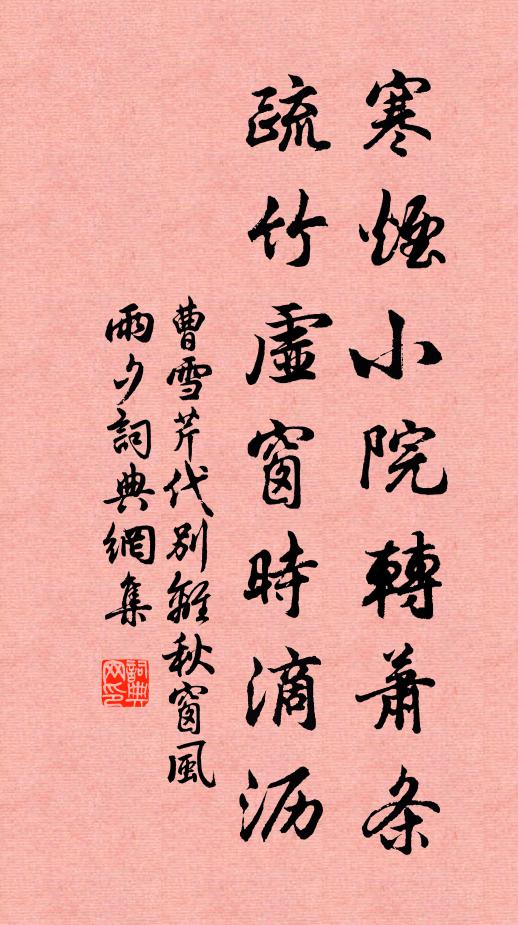 寒煙小院轉蕭条
疏竹虛窗時滴沥
曹雪芹代别離秋窗風
雨夕詞典網集
詞典網印